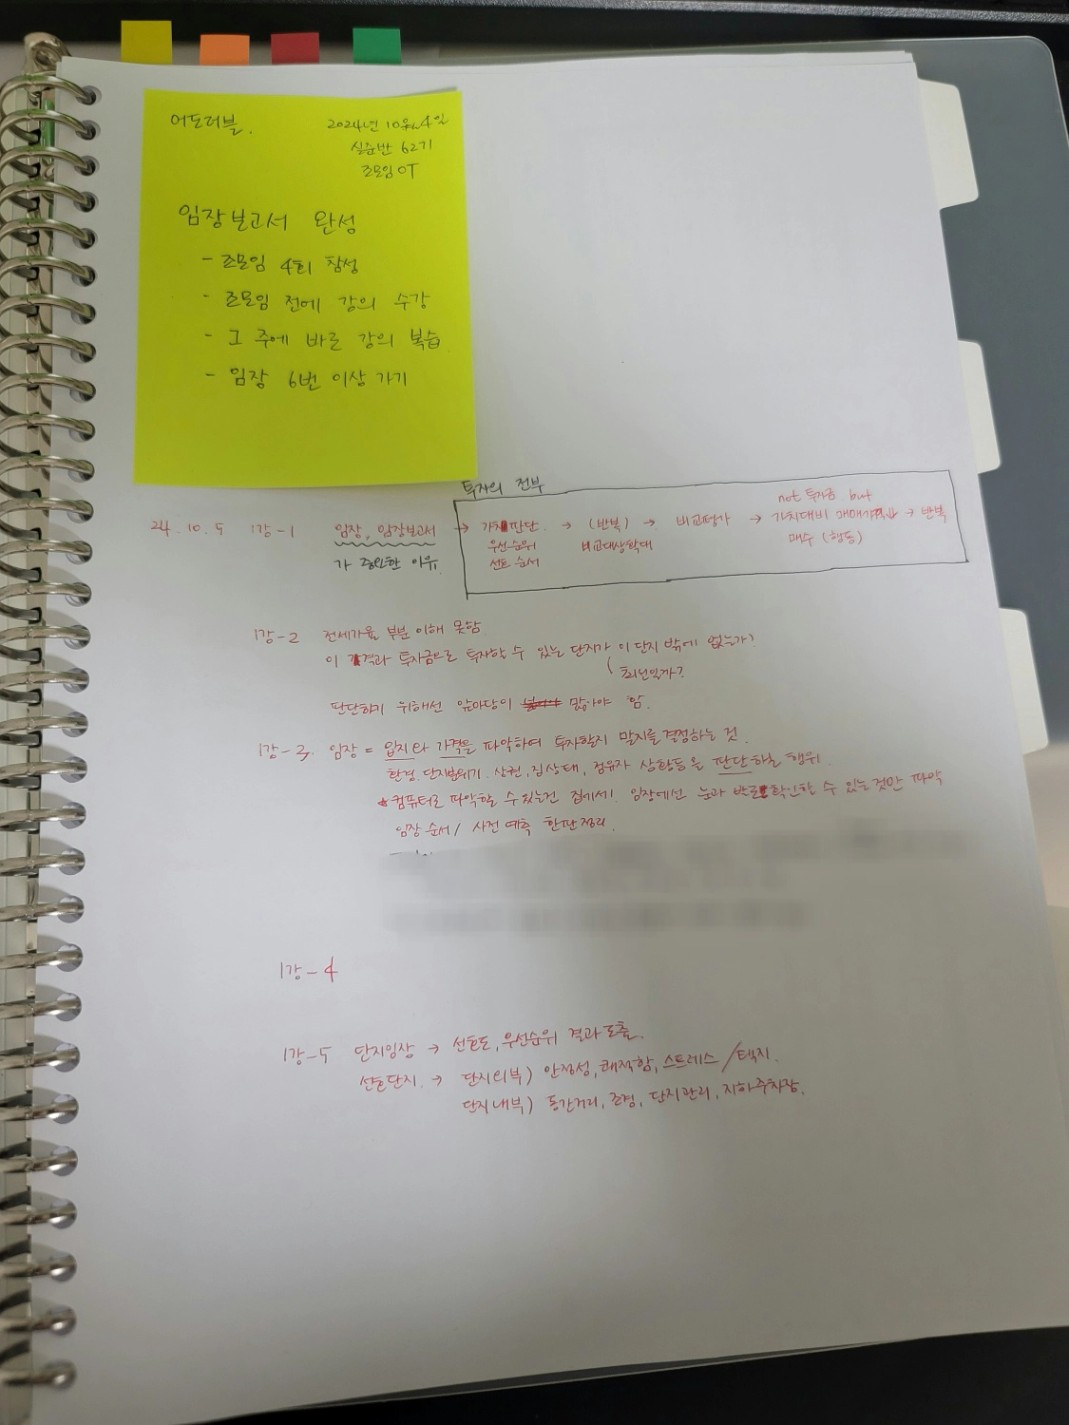 어도러블.
2024년 10월 4일
실준반 62기
조모임 OT
임장보고서 완성
- 조모임 4회 참석
- 조모임 전에 강의 수강
- 그 주에 바로 강의 복습
- 임장 6번 이상 가기
투자의 전부
24.10.5 1강-1 임장, 임장보고서 → 가치판단. → (반복) → 비교평가 → not 투자금, but 가치대비 매매가 → 반복
가 중요한 이유. 우선순위 비교대상확대 매수 (행동)
선호 순서
1강-2 전세가율 부분 이해 못함
이 가격과 투자금으로 투자할 수 있는 단지가 이 단지 밖에 없는가?
최선일까?
판단하기 위해선 앞마당이 많아야 함.
1강-3. 임장 = 입지와 가격을 파악하여 투자할지 말지를 결정하는 것.
환경, 단지분위기, 상권, 집상태, 점유자 상황등을 판단하는 행위.
* 컴퓨터로 파악할 수 있는건 집에서! 임장에선 눈과 발로 확인할 수 있는 것만 파악
임장 순서 / 사전 예측 한판정리.
1강-4
1강-5 단지임장 → 선호도, 우선순위 결과 도출.
선호단지. → 단지외부) 안정성, 쾌적함, 스트레스 / 택지.
단지내부) 동간거리, 조경, 단지관리, 지하주차장.